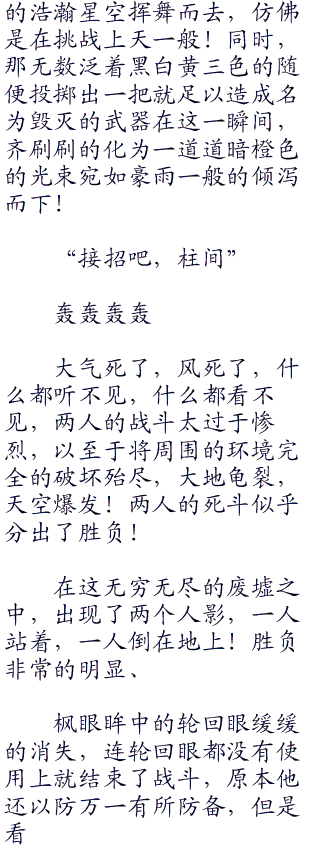 的浩瀚星空挥舞而去，仿佛
是在挑战上天一般！同时，
那无数泛着黑白黄三色的随
便投掷出一把就足以造成名
为毁灭的武器在这一瞬间，
齐刷刷的化为一道道暗橙色
的光束宛如豪雨一般的倾泻
而下！
“接招吧，柱间”
轰轰轰轰
大气死了，风死了，什
么都听不见，什么都看不
见，两人的战斗太过于惨
烈，以至于将周围的环境完
全的破坏殆尽，大地龟裂，
天空爆发！两人的死斗似乎
分出了胜负！
在这无穷无尽的废墟之
中，出现了两个人影，一人
站着，一人倒在地上！胜负
非常的明显、
枫眼眸中的轮回眼缓缓
的消失，连轮回眼都没有使
用上就结束了战斗，原本他
还以防万一有所防备，但是
看